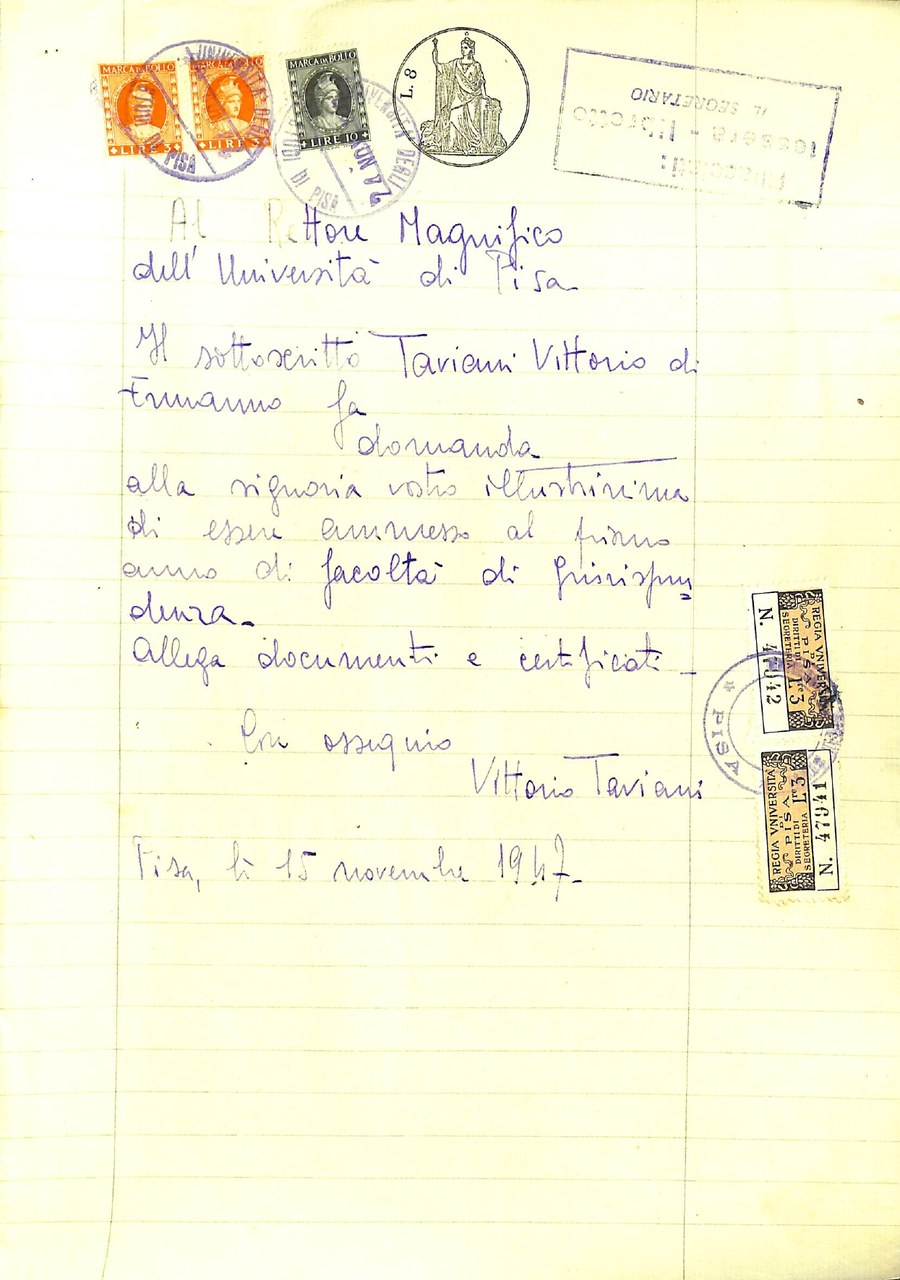 MARCA DA BOLLO
LIRE 3
MARCA DA BOLLO
LIRE 3
MARCA DA BOLLO
LIRE 10
PISA
DEGLI
DI PISA
24 NOV
L. 8
Rilasciati:
tessera - libretto
IL SEGRETARIO
Al Rettore Magnifico
dell'Università di Pisa
Il sottoscritto Taviani Vittorio di
Ermanno fa
domanda
alla signoria vostra illustrissima
di essere ammesso al primo
anno di facoltà di giurispru=
denza.
Allega documenti e certificati.
Con ossequio
Vittorio Taviani
Pisa, lì 15 novembre 1947.
REGIA VNIVERSITÀ
DI
PISA
DIRITTI DI
SEGRETERIA
L're 3
N. 47942
* PISA
REGIA VNIVERSITÀ
DI
PISA
DIRITTI DI
SEGRETERIA
L're 3
N. 47941